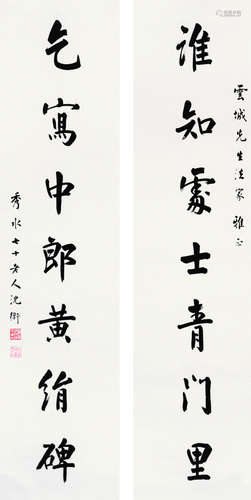 雲城先生法家 雅正
誰知處士青门里
乞寫中郎黄絹碑
秀水七十老人沈衛